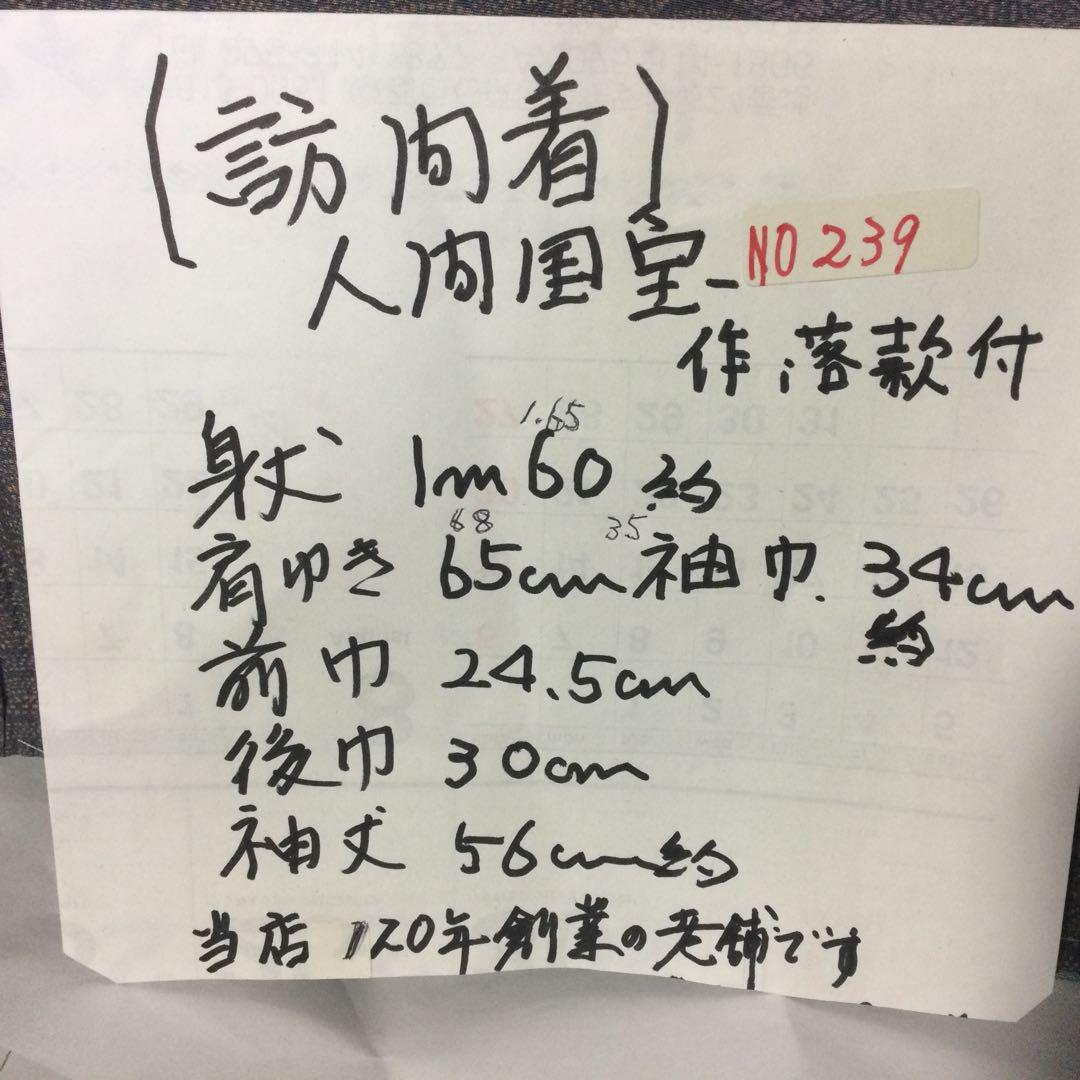 (訪問着)
人間国宝
NO 239
作 落款付
1.65
身丈 1m60 約
68 35
肩ゆき 65cm 袖巾 34cm
約
前巾 24.5cm
後巾 30cm
袖丈 56cm約
当店 120年創業の老舗です